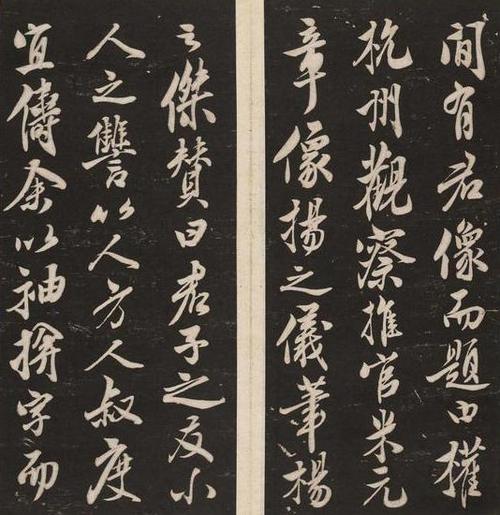 間有君像而題曰權
杭州觀察推官米元
章像揚之儀筆楊
之傑贊曰君子之友小
人之讐以人方人叔度
宜儔余以袖揜字而